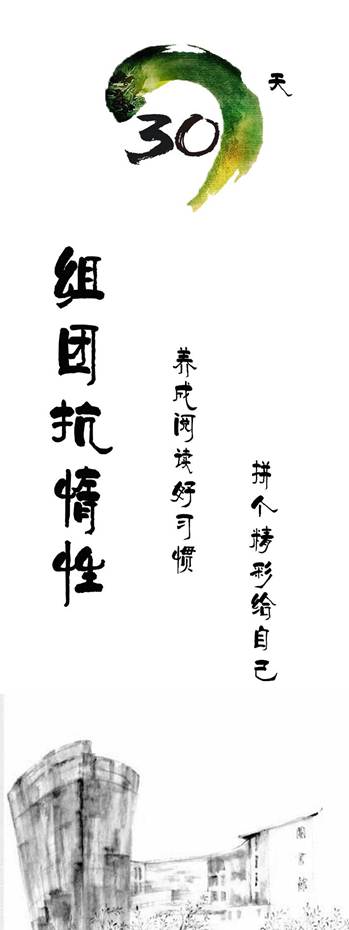 30天
组团抗惰性
养成阅读好习惯
拼个精彩给自己
图书馆